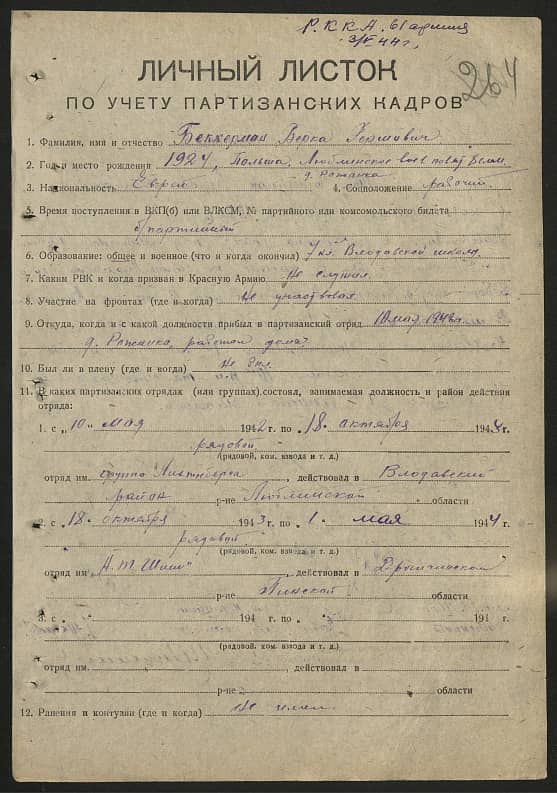 Р. К К А. 61 армия
3/VI 44 г.
264
ЛИЧНЫЙ ЛИСТОК
ПО УЧЕТУ ПАРТИЗАНСКИХ КАДРОВ
1. Фамилия, имя и отчество Беккерман Берка Гершович
2. Год и место рождения 1924, Польша, Люблинское воев
д. Рожанка
3. Национальность Еврей 4. Соцположение рабочий
5. Время поступления в ВКП(б) или ВЛКСМ, № партийного или комсомольского билета
б/партийный
6. Образование: общее и военное (что и когда окончил) 7 кл. Влодавской школы
7. Каким РВК и когда призван в Красную Армию Не служил
8. Участие на фронтах (где и когда) Не участвовал
9. Откуда, когда и с какой должности прибыл в партизанский отряд 10 мая 1942 г.
д. Рожанка, работал дома
10. Был ли в плену (где и когда) не был
11. В каких партизанских отрядах (или группах) состоял, занимаемая должность и район действия
отряда:
1. с „10" мая 1942 г. по „18. октября 194 г.
рядовой
(рядовой, ком. взвода и т. д.)
отряд им. группа , действовал в Влодавский
район р-не Люблинской области
2. с „18. октября 1943 г. по „1. мая 1944 г.
рядовой
(рядовой, ком. взвода и т. д.)
отряд им. , действовал в
Пинской области
3. с „ " 194 г. по „ " 194 г.
(рядовой, ком. взвода и т. д.)
отряд им. , действовал в
р-не области
12. Ранения и контузии (где и когда) не имел